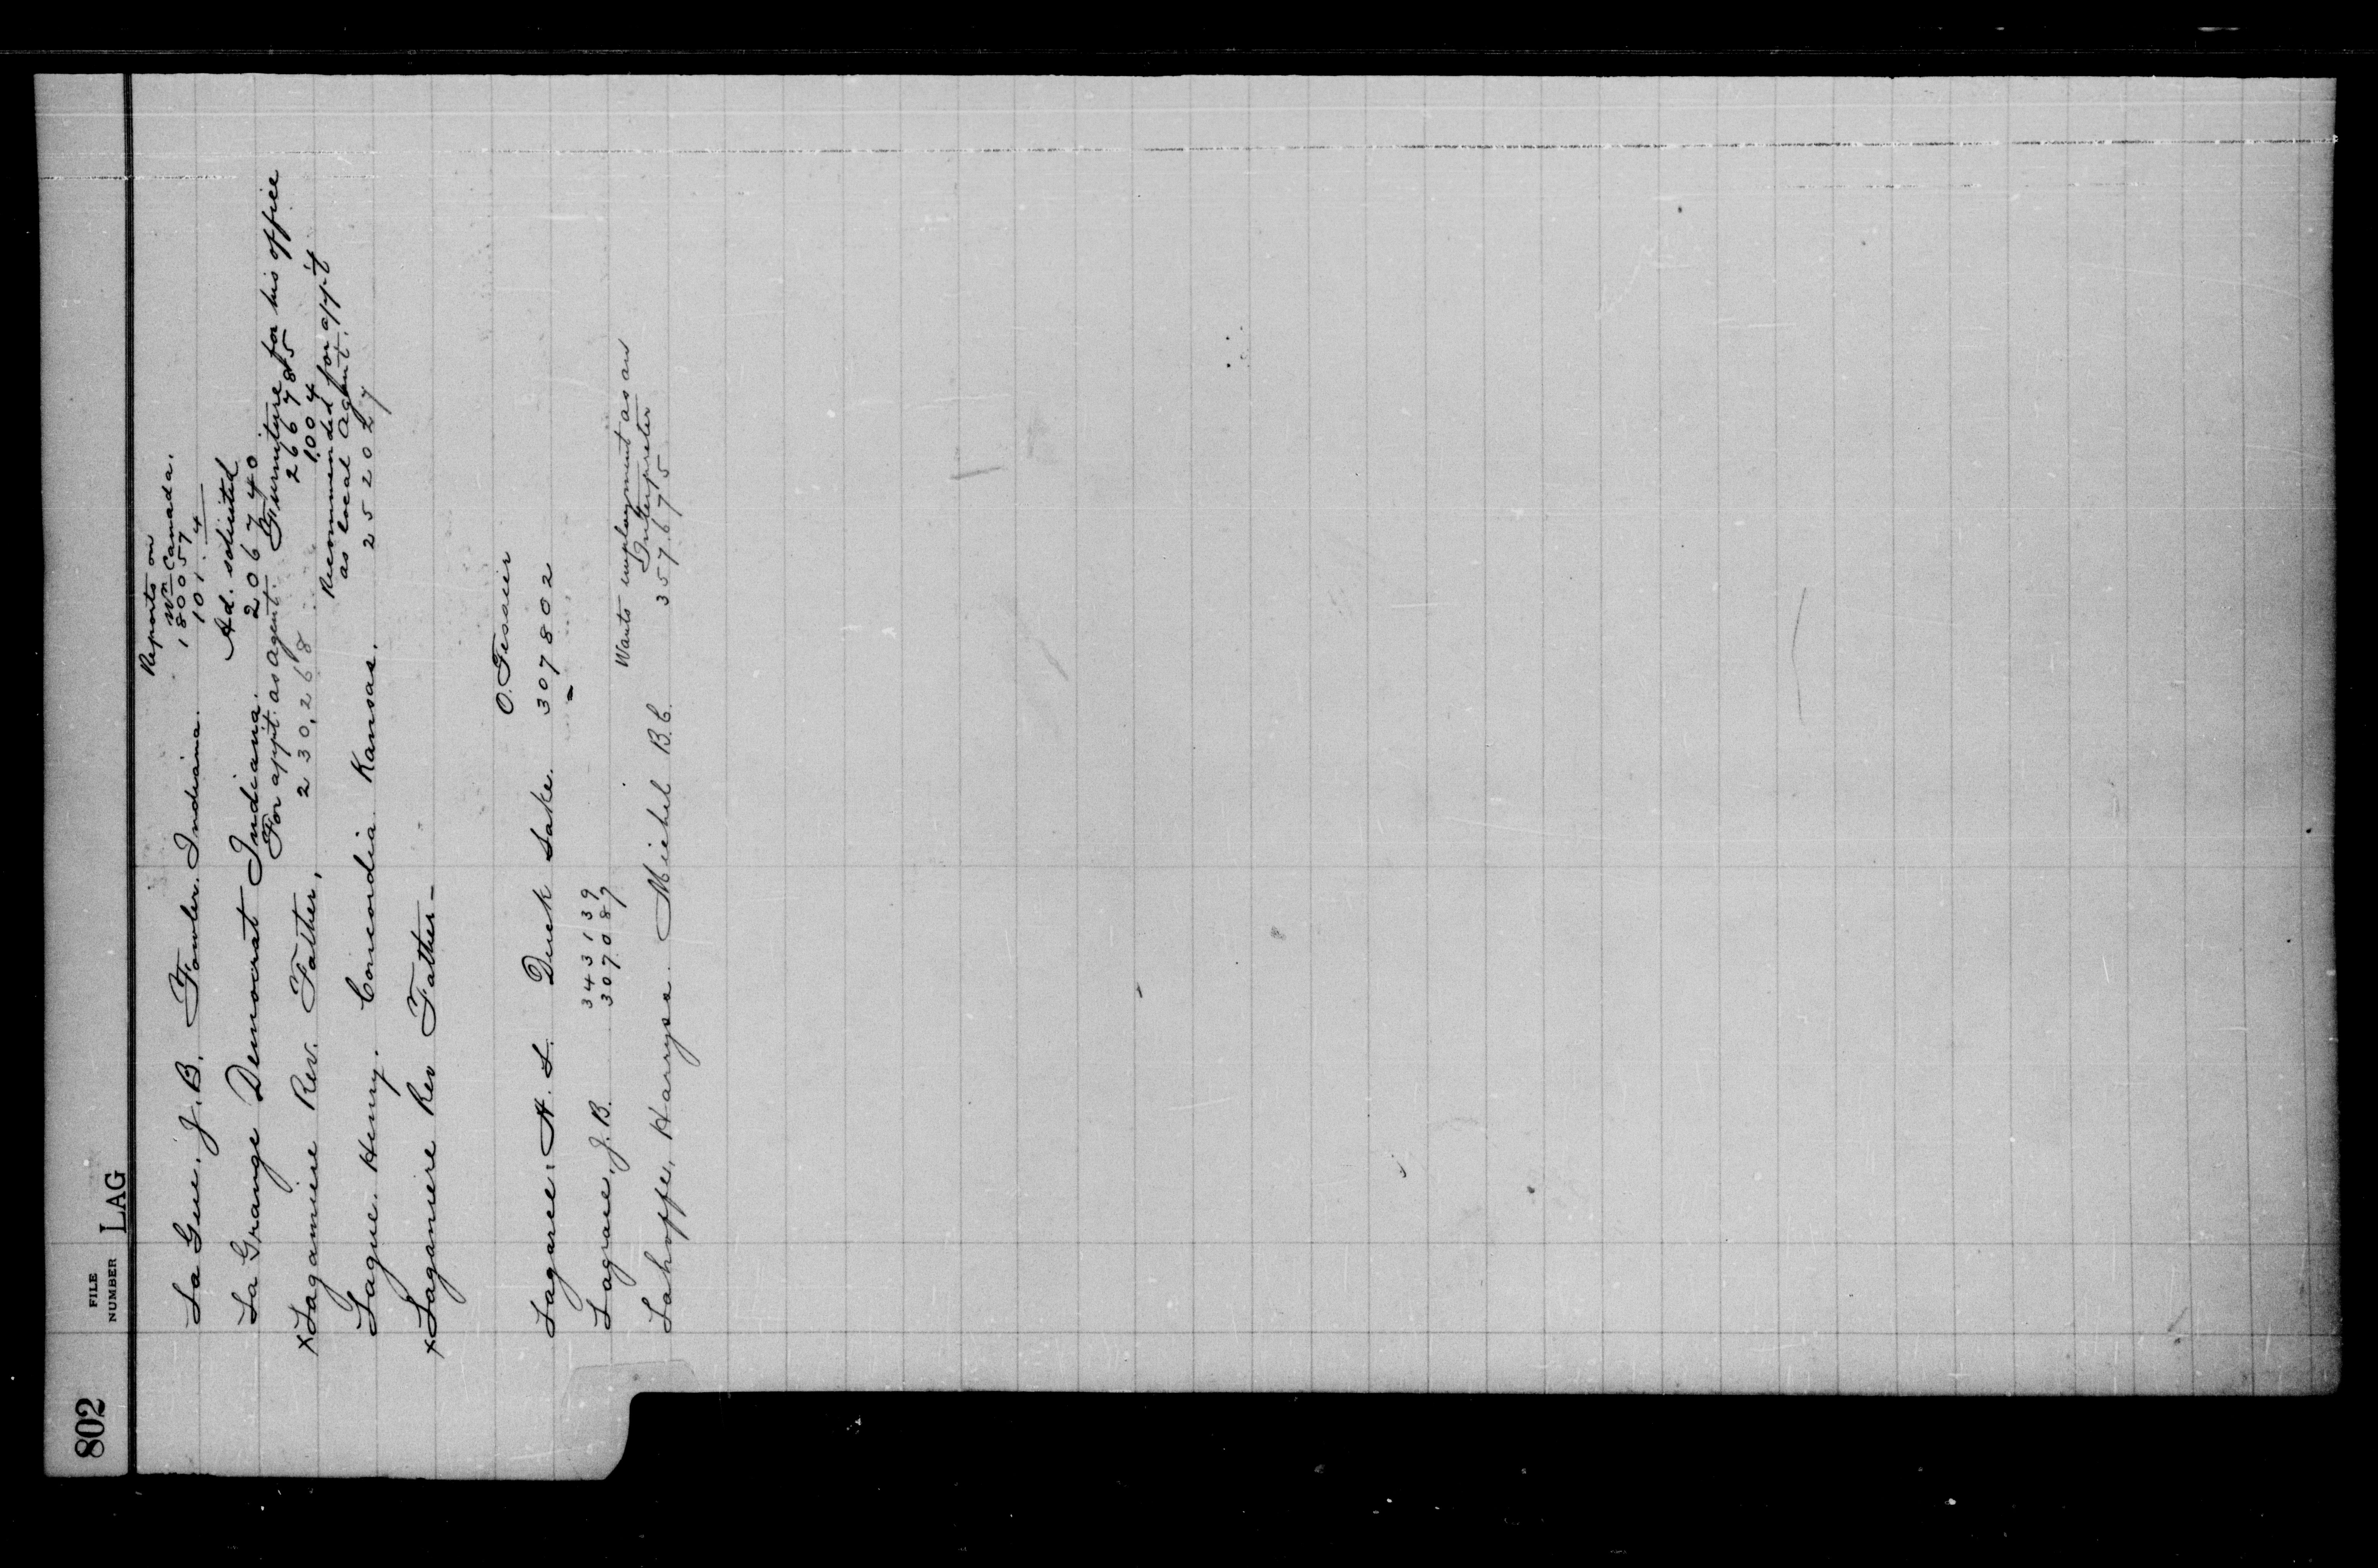 802
FILE
NUMBER
LAG
Reports on
Wn Canada.
La Gue, J. B. Fowler. Indiana. 180057
101. 4
Ad. solicited
La Grange Democrat Indiana. 206740
For appt. as Agent. Furniture for his office
x Laganiere Rev. Father, 230,268 266785
1,004
Recommended for app't
as local Agent.
Lague. Henry. Concordia Kansas. 252027
x Laganiere Rev Father-
O. Tessier
Lagaree, A. L. Duck Lake. 307802
343139
Lagrace, J. B. 307087
Wants employment as an
Interpreter
Lahoffe, Harrysa. Michel B.C. 3576775